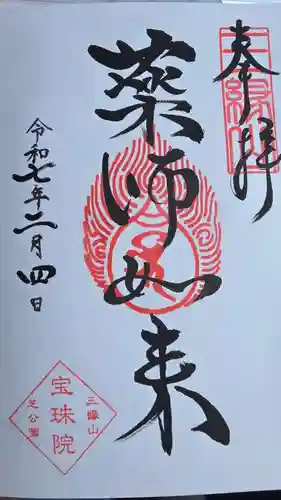 奉拝
薬師如来
令和七年二月四日
三縁山
宝珠院
芝公園